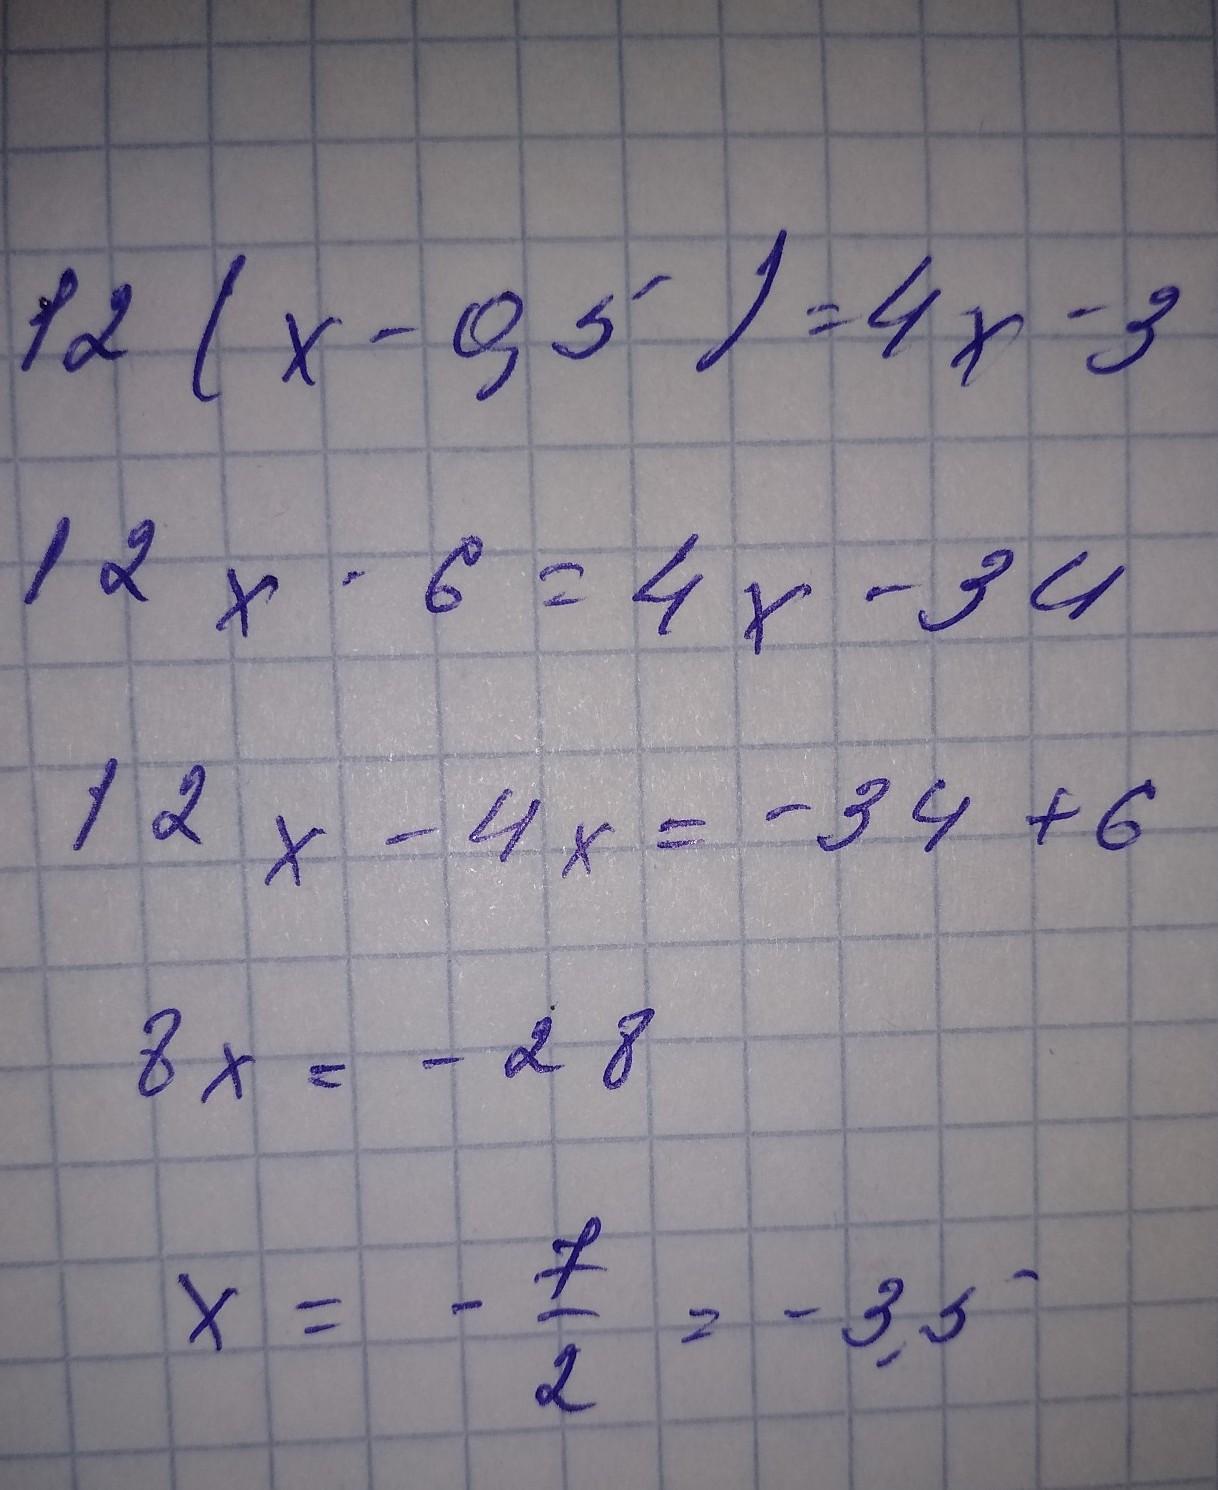 12(x-0,5)=4x-3
12x-6=4x-34
12x-4x=-34+6
8x=-28
x=-7/2=-3,5